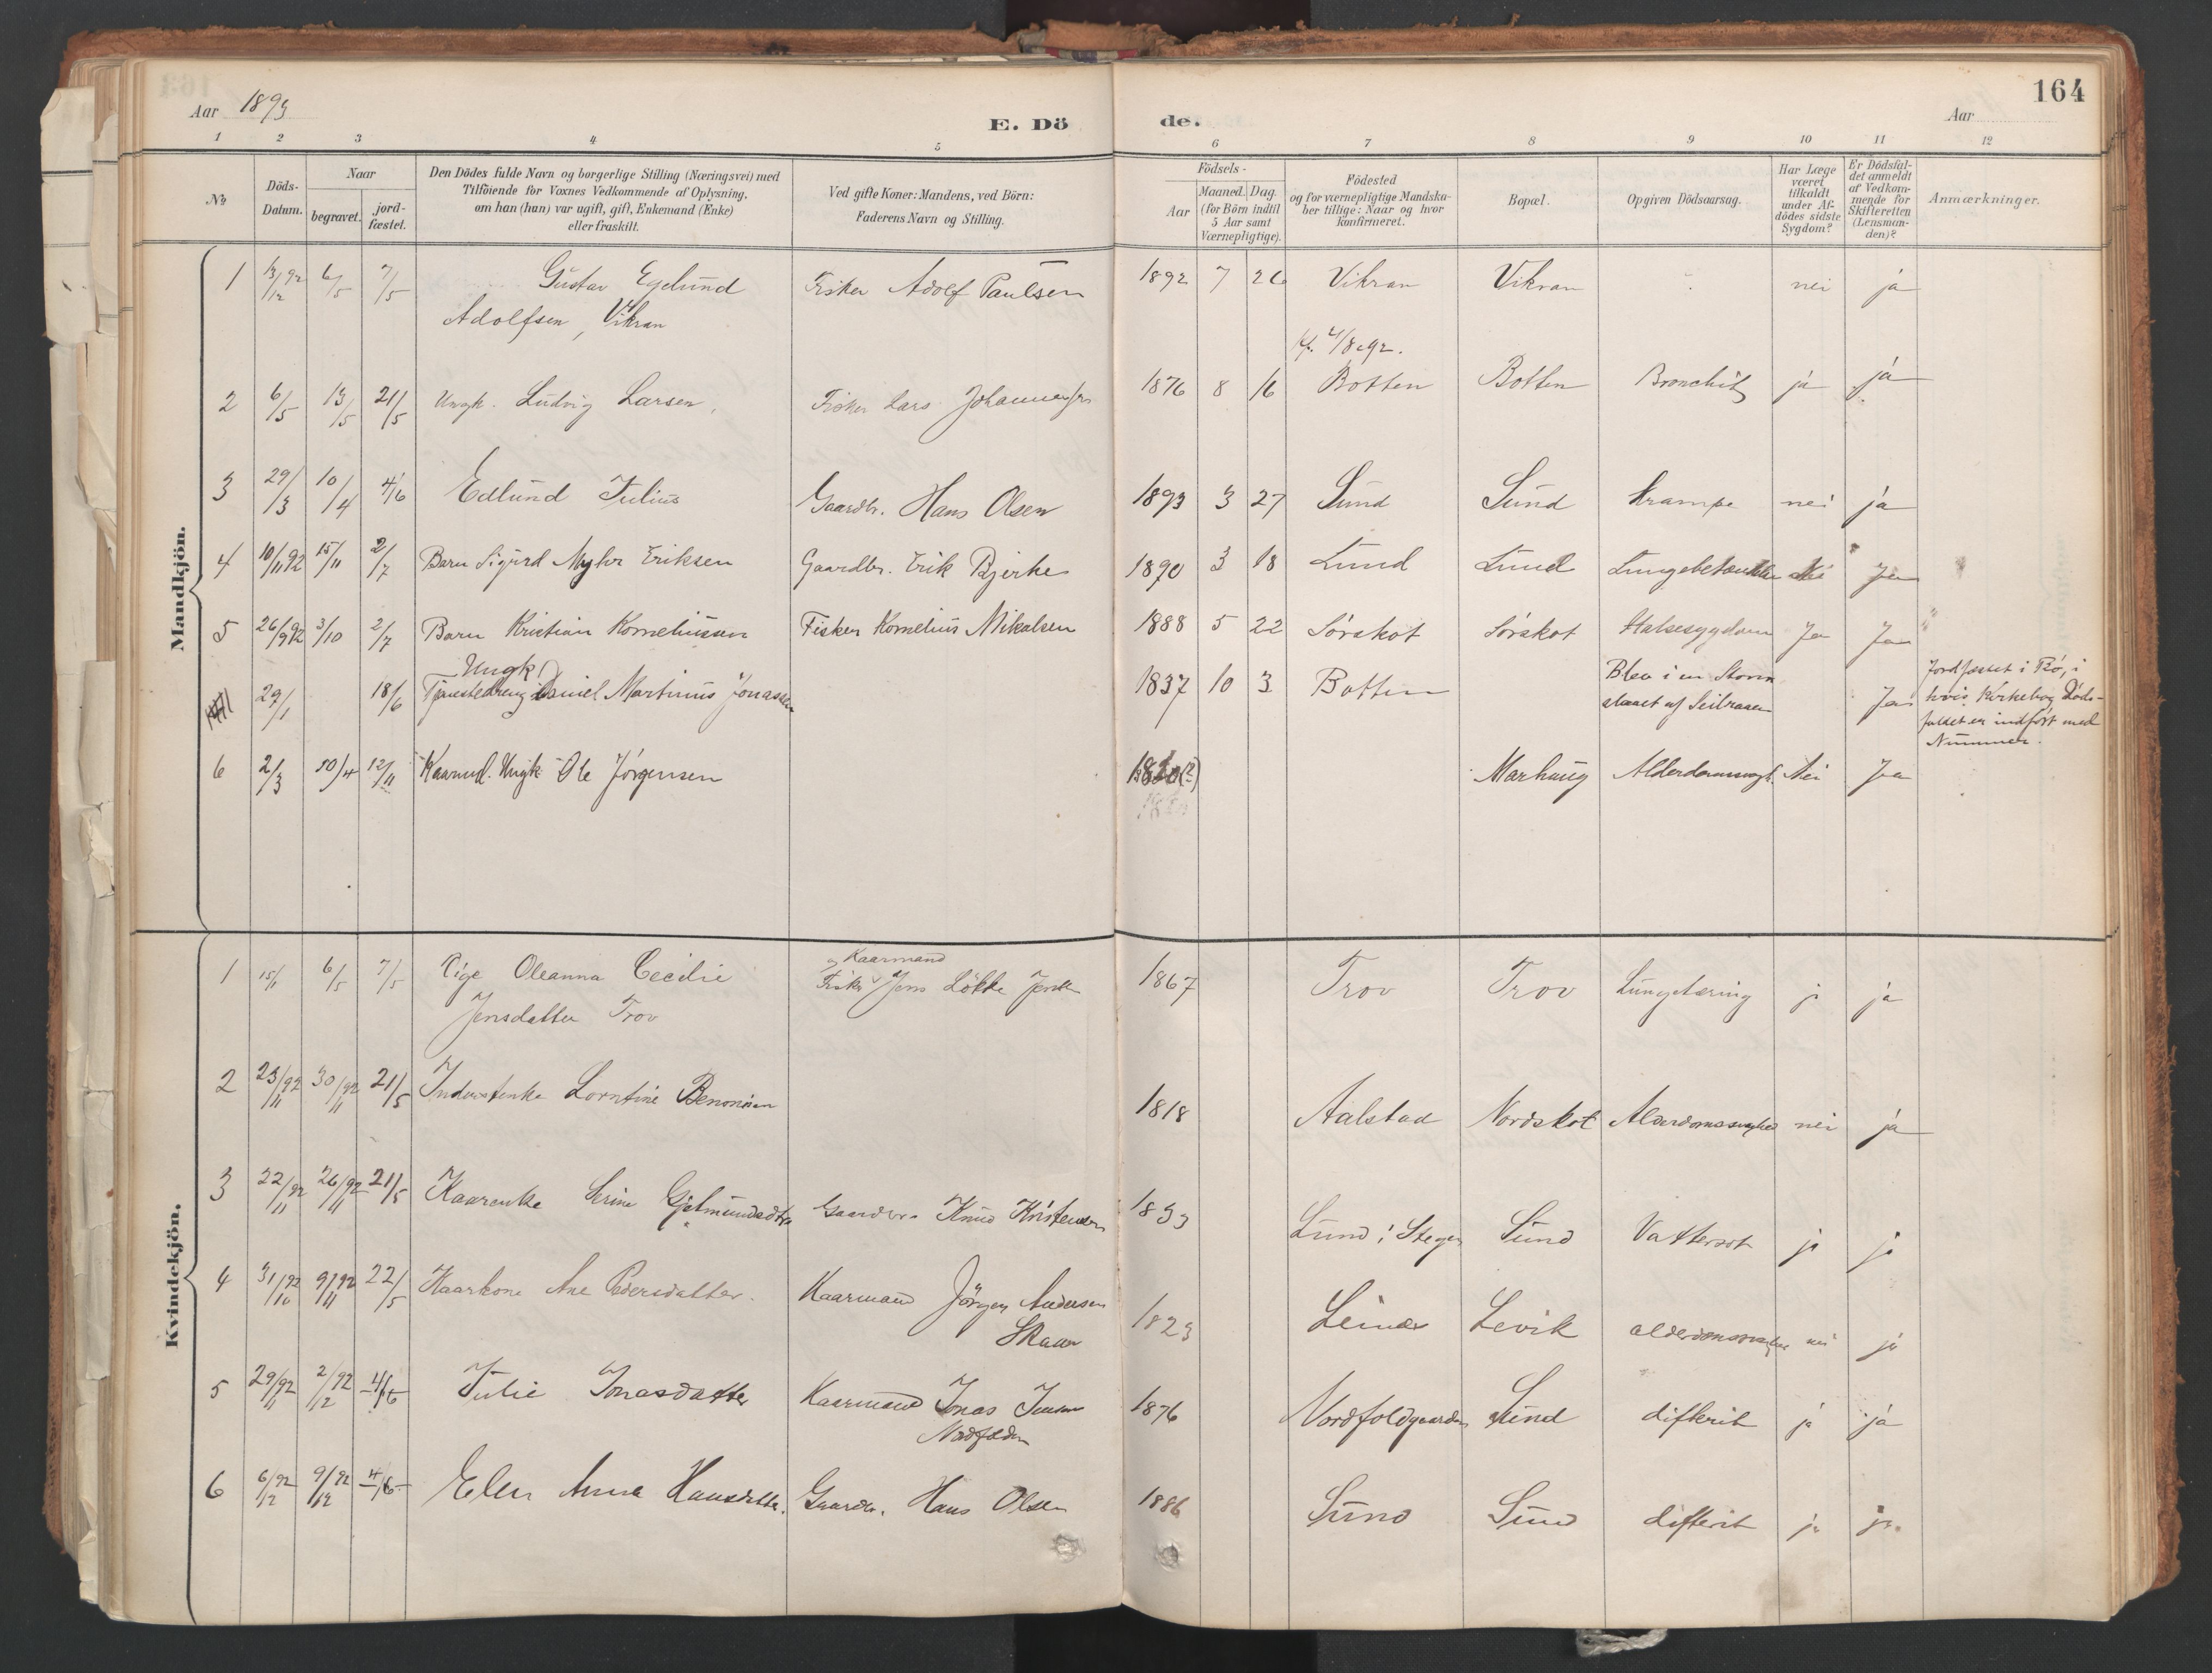 164
Aar 1893
E. Dö
de.
Aar
1 2 3 4 5 6 7 8 9 10 11 12
№
Döds-
Datum.
Naar
begravet.
jord-
fæstet.
Den Dödes fulde Navn og borgerlige Stilling (Næringsvei) med
Tilföiende for Voxnes Vedkommende af Oplysning,
om han (hun) var ugift, gift, Enkemand (Enke)
eller fraskilt.
Ved gifte Koner: Mandens, ved Börn:
Faderens Navn og Stilling.
Födsels-
Aar
Maaned. Dag.
(for Börn indtil
5 Aar samt
Værnepligtige).
Födested
og for værnepligtige Mandska-
ber tillige: Naar og hvor
konfirmeret.
Bopæl.
Opgiven Dödsaarsag.
Har Læge
været
tilkaldt
under Af-
dödes sidste
Sygdom?
Er Dödsfal-
det anmeldt
af Vedkom-
mende for
Skifteretten
(Lensman-
den)?
Anmærkninger.
Mandkjön.
1 13/12 92 6/5 7/5 Gustav Egelund Fisker Adolf Paulsen 1892 7 26 Vikran Vikran nei ja
Adolfsen, Vikran
4/8 92.
2 6/5 13/5 21/5 Ungk. Ludvig Larsen, Fisker Lars Johannessen 1876 8 16 Botten Botten Bronchit ja ja
3 29/3 10/4 4/6 Edlund Julius Gaardbr. Hans Olsen 1893 3 27 Sund Sund krampe nei ja
4 10/11 92 15/11 2/7 Barn Sigurd Eriksen Gaardbr. Erik Bjerke 1890 3 18 Lund Lund Nei Ja
5 26/9 92 3/10 2/7 Barn Kristian Korneliussen Fisker Kornelius Mikalsen 1888 5 22 Sørskot Sørskot Halsesygdom Ja Ja
Ungk
29/1 18/6 Tjenestedreng Daniel Martinus Jonassen 1837 10 3 Botten Blev i en Storm Ja Jordfæstet i Bö, i
slaaet af Seilraaen hvis Kirkebog Döds-
faldet er indfört med
Nummer.
6 2/3 10/4 12/11 Kaarmd. Ungk Ole Jörgensen (?) Marhaug Alderdomssvagh. Nei Ja
Kvindekjön.
1 15/1 6/5 7/5 Pige Oleanna Cecilie Fisker og Kaarmand Jens Lökke 1867 Trov Trov Lungetæring ja ja
Jensdatter Trov
2 23/11 92 30/11 92 21/5 Inderstenke Lorntine Benonisen 1818 Aalstad Nordskot Alderdomssvaghed nei ja
3 22/11 92 26/11 92 21/5 Kaarenke Serine Gjetmundsdtr Gaardbr. Knud Kristensen 1833 Lund i Stegen Sund Vattersot ja ja
4 31/10 92 9/11 92 22/5 Kaarkone Ane Pedersdatter. Kaarmand Jörgen Andersen 1823 Leines Levik alderdomssvaghed nei ja
Skaar
5 29/11 92 2/12 92 4/6 Julie Jonasdatter Kaarmand Jonas Jensen 1876 Nordfoldgaarden Sund difterit ja ja
Nordfolden
6 6/12 92 9/12 92 4/6 Elen Anna Hansdatter. Gaardbr. Hans Olsen 1886 Sund Sund difterit ja ja.